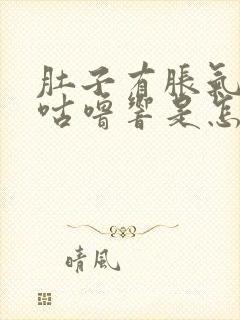 肚子有脹氣
咕嚕響是怎
晴風